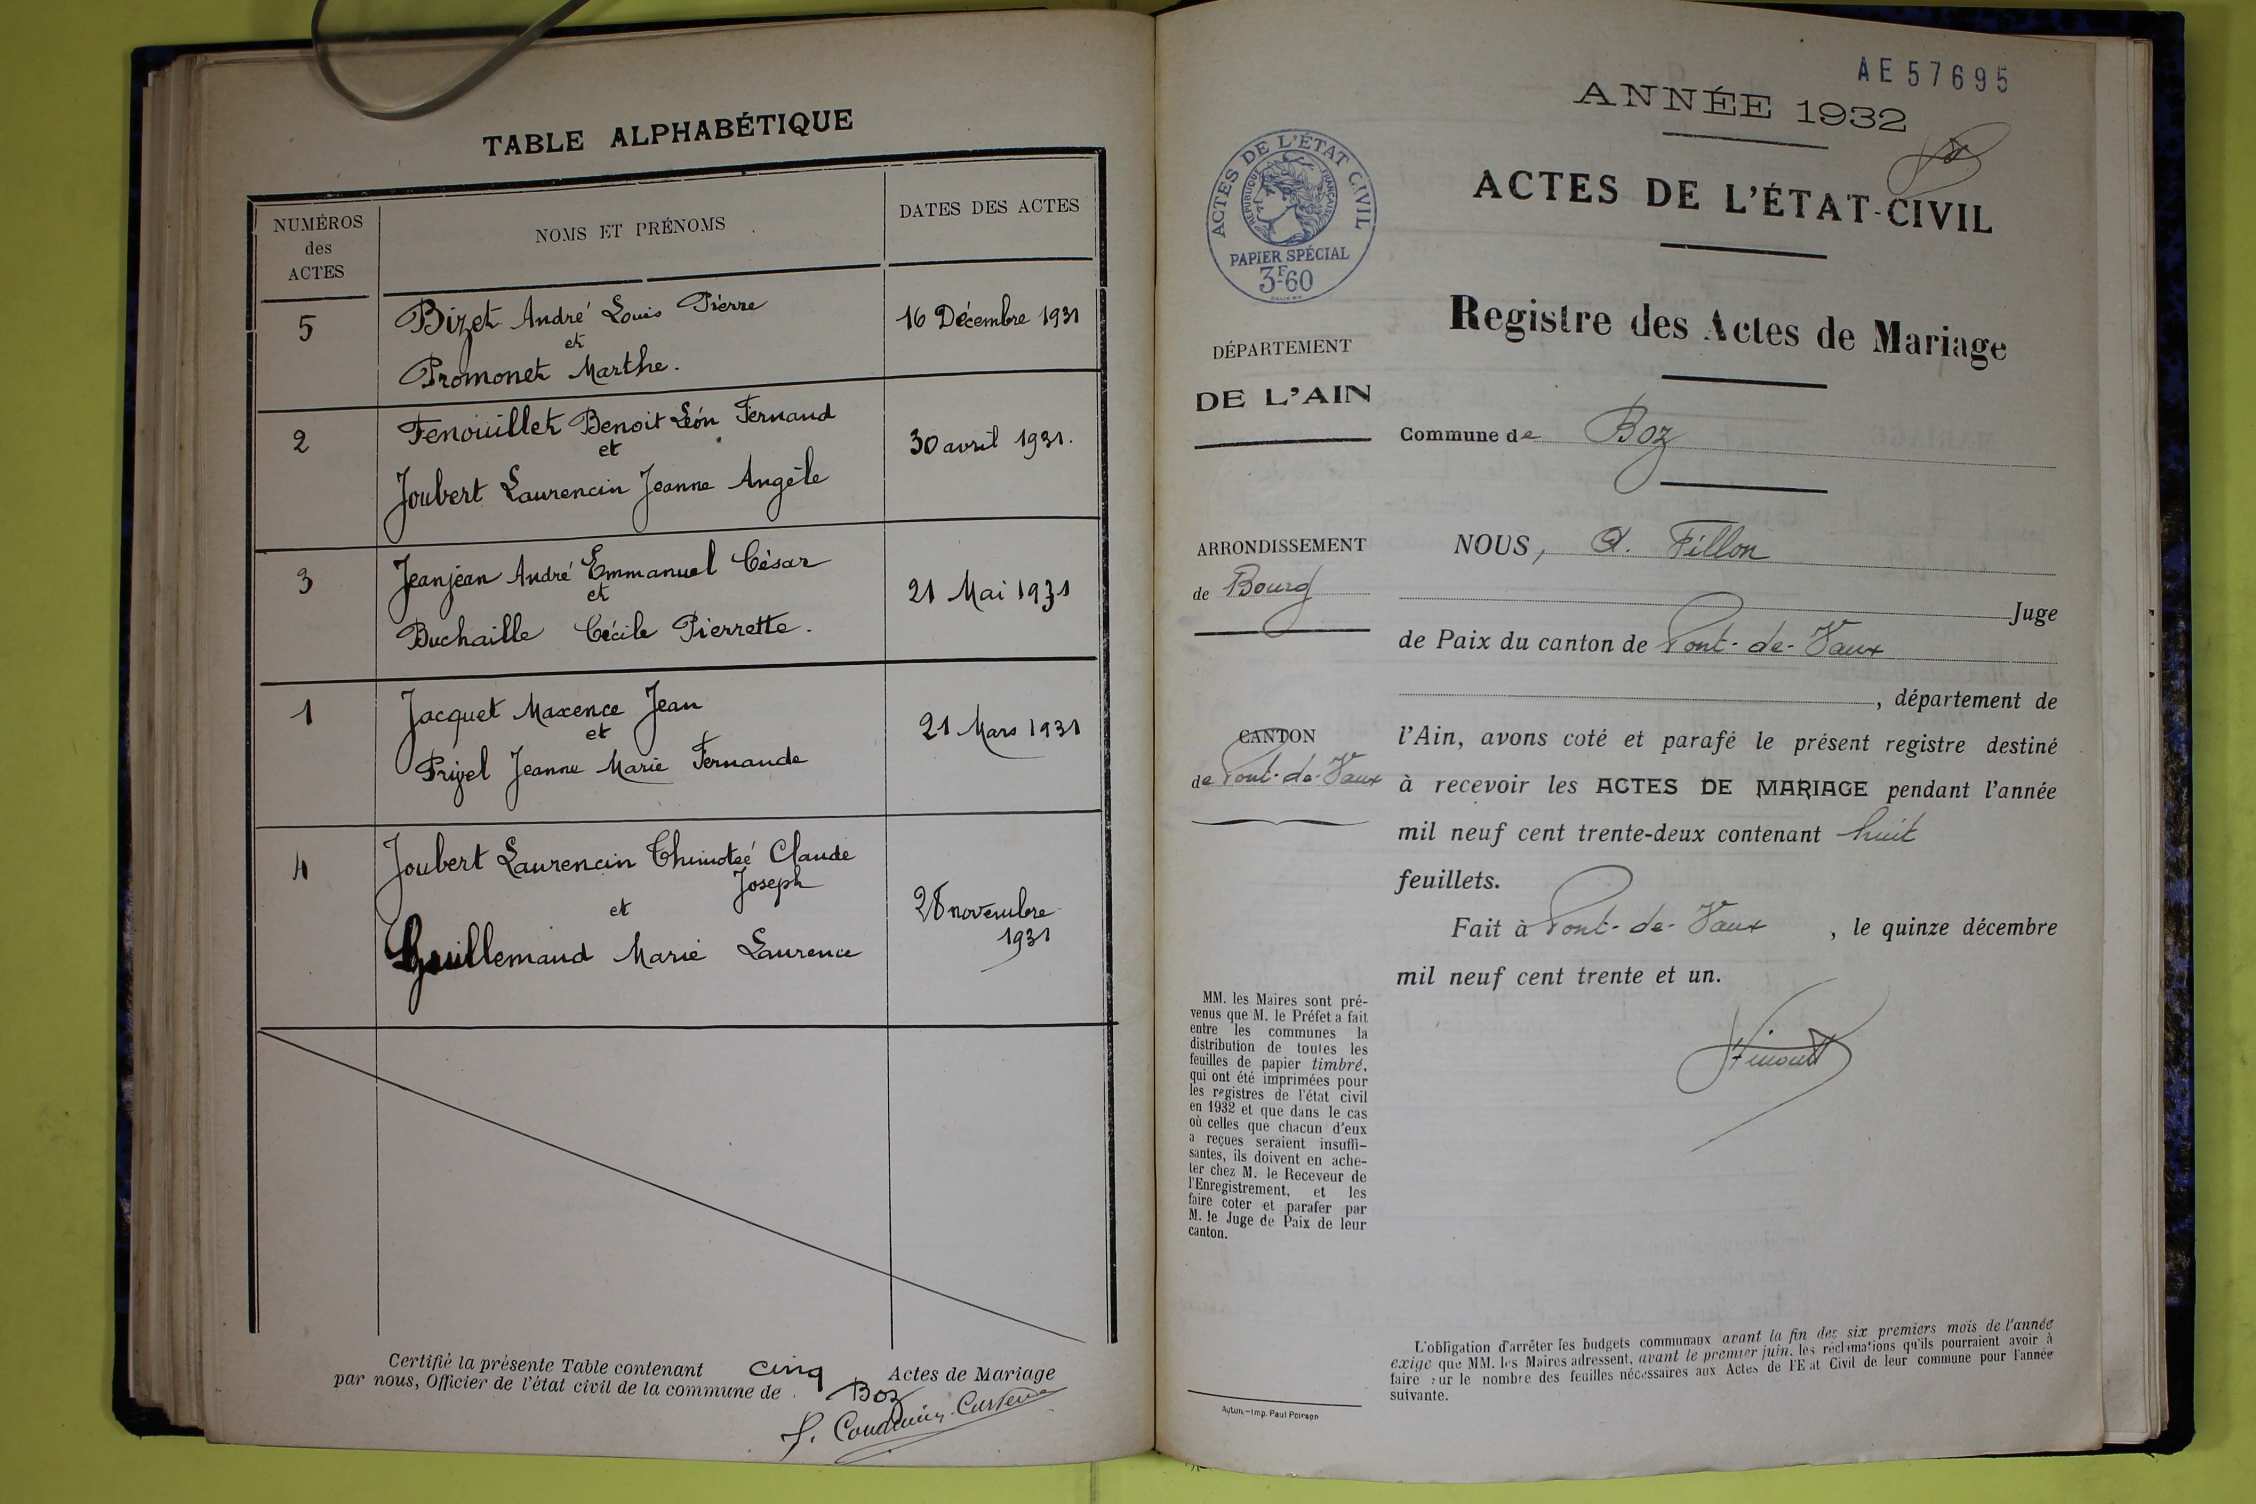 TABLE ALPHABÉTIQUE
NUMÉROS
des
ACTES
NOMS ET PRÉNOMS
DATES DES ACTES
5
Bizet André Louis Pierre
et
Promonet Marthe.
16 Décembre 1931
2
Fenouillet Benoit Léon Fernand
et
Joubert Laurencin Jeanne Angèle
30 avril 1931.
3
Jeanjean André Emmanuel César
et
Buchaille Cécile Pierrette.
21 Mai 1931
1
Jacquet Maxence Jean
et
Privel Jeanne Marie Fernande
21 Mars 1931
4
Joubert Laurencin Thimoteé Claude
Joseph
et
Guillemaud Marie Laurence
28 novembre
1931
Certifié la présente Table contenant cinq Actes de Mariage
par nous, Officier de l'état civil de la commune de Boz
AE57695
ANNÉE 1932
ACTES DE L'ÉTAT-CIVIL
ACTES DE L'ÉTAT CIVIL
RÉPUBLIQUE FRANÇAISE
PAPIER SPÉCIAL
3F60
Registre des Actes de Mariage
DÉPARTEMENT
DE L'AIN
Commune de Boz
ARRONDISSEMENT
de Bourg
CANTON
de Pont-de-Vaux
NOUS, A. Fillon
Juge
de Paix du canton de Pont-de-Vaux
, département de
l'Ain, avons coté et parafé le présent registre destiné
à recevoir les ACTES DE MARIAGE pendant l'année
mil neuf cent trente-deux contenant huit
feuillets.
Fait à Pont-de-Vaux, le quinze décembre
mil neuf cent trente et un.
MM. les Maires sont pré-
venus que M. le Préfet a fait
entre les communes la
distribution de toutes les
feuilles de papier timbré,
qui ont été imprimées pour
les registres de l'état civil
en 1932 et que dans le cas
où celles que chacun d'eux
a reçues seraient insuffi-
santes, ils doivent en ache-
ter chez M. le Receveur de
l'Enregistrement, et les
faire coter et parafer par
M. le Juge de Paix de leur
canton.
L'obligation d'arrêter les budgets communaux avant la fin des six premiers mois de l'année
exige que MM. les Maires adressent, avant le premier juin, les réclamations qu'ils pourraient avoir à
faire sur le nombre des feuilles nécessaires aux Actes de l'Etat Civil de leur commune pour l'année
suivante.
Autun.—Imp. Paul Poirson